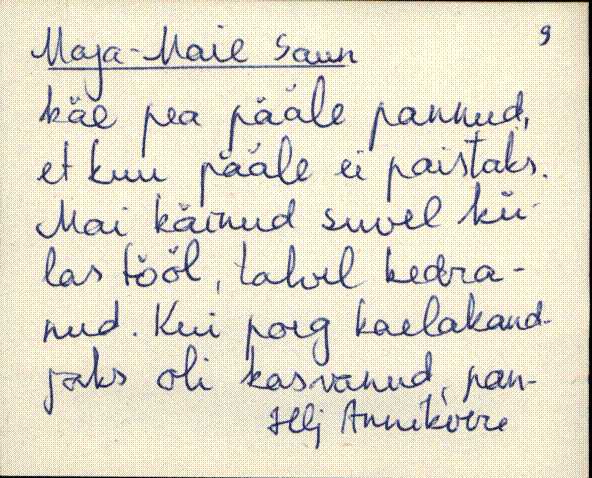 9
Maja-Maie Saun
käe pea pääle pannud,
et kuu pääle ei paistaks.
Mai käinud suvel kü-
las tööl, talvel kedra-
nud. Kui poeg kaelakand-
jaks oli kasvanud, pan-
Hlj Annikvere